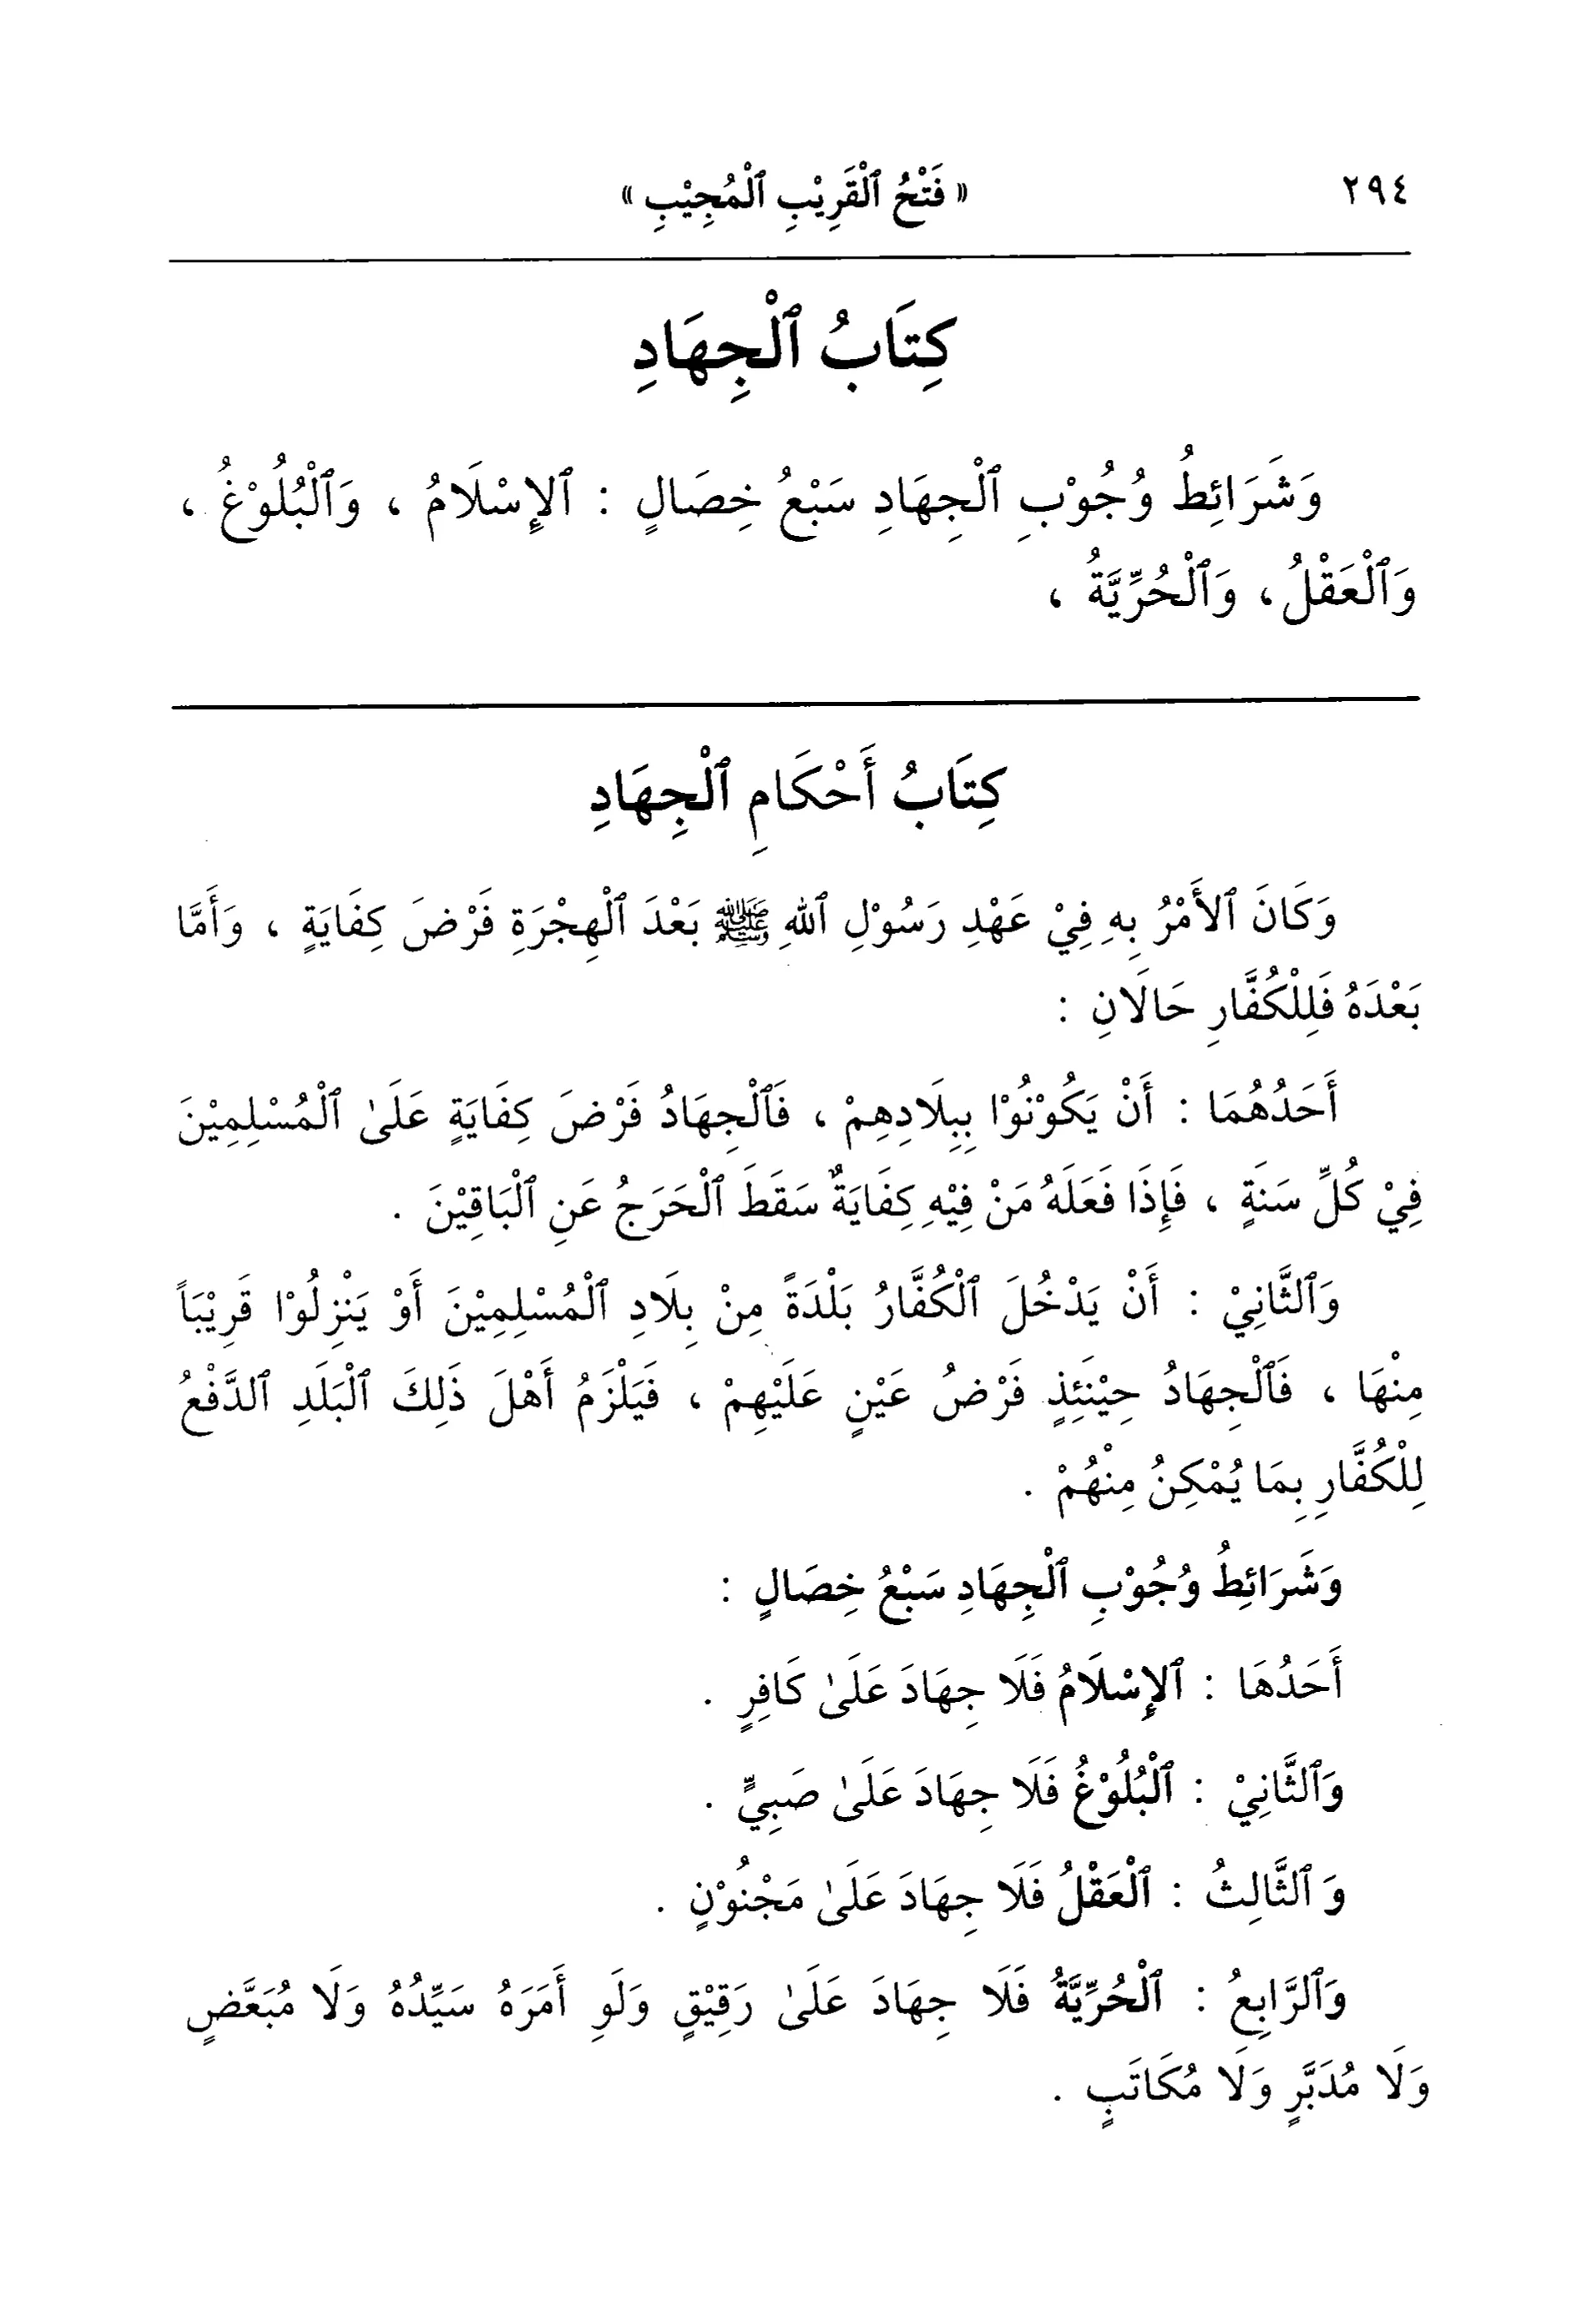 ٢٩٤
« فَتْحُ ٱلْقَرِيْبِ ٱلْمُجِيْبِ »
كِتَابُ ٱلْجِهَادِ
وَشَرَائِطُ وُجُوْبِ ٱلْجِهَادِ سَبْعُ خِصَالٍ : ٱلإِسْلَامُ ، وَٱلْبُلُوْغُ ،
وَٱلْعَقْلُ ، وَٱلْحُرِّيَّةُ ،
كِتَابُ أَحْكَامِ ٱلْجِهَادِ
وَكَانَ ٱلأَمْرُ بِهِ فِيْ عَهْدِ رَسُوْلِ ٱللهِ ﷺ بَعْدَ ٱلْهِجْرَةِ فَرْضَ كِفَايَةٍ ، وَأَمَّا
بَعْدَهُ فَلِلْكُفَّارِ حَالَانِ :
أَحَدُهُمَا : أَنْ يَكُوْنُوْا بِبِلَادِهِمْ ، فَٱلْجِهَادُ فَرْضَ كِفَايَةٍ عَلَىٰ ٱلْمُسْلِمِيْنَ
فِيْ كُلِّ سَنَةٍ ، فَإِذَا فَعَلَهُ مَنْ فِيْهِ كِفَايَةٌ سَقَطَ ٱلْحَرَجُ عَنِ ٱلْبَاقِيْنَ .
وَٱلثَّانِيْ : أَنْ يَدْخُلَ ٱلْكُفَّارُ بَلْدَةً مِنْ بِلَادِ ٱلْمُسْلِمِيْنَ أَوْ يَنْزِلُوْا قَرِيْبَاً
مِنْهَا ، فَٱلْجِهَادُ حِيْنَئِذٍ فَرْضُ عَيْنٍ عَلَيْهِمْ ، فَيَلْزَمُ أَهْلَ ذَلِكَ ٱلْبَلَدِ ٱلدَّفْعُ
لِلْكُفَّارِ بِمَا يُمْكِنُ مِنْهُمْ .
وَشَرَائِطُ وُجُوْبِ ٱلْجِهَادِ سَبْعُ خِصَالٍ :
أَحَدُهَا : ٱلإِسْلَامُ فَلَا جِهَادَ عَلَىٰ كَافِرٍ .
وَٱلثَّانِيْ : ٱلْبُلُوْغُ فَلَا جِهَادَ عَلَىٰ صَبِيٍّ .
وَٱلثَّالِثُ : ٱلْعَقْلُ فَلَا جِهَادَ عَلَىٰ مَجْنُوْنٍ .
وَٱلرَّابِعُ : ٱلْحُرِّيَّةُ فَلَا جِهَادَ عَلَىٰ رَقِيْقٍ وَلَوِ أَمَرَهُ سَيِّدُهُ وَلَا مُبَعَّضٍ
وَلَا مُدَبَّرٍ وَلَا مُكَاتَبٍ .